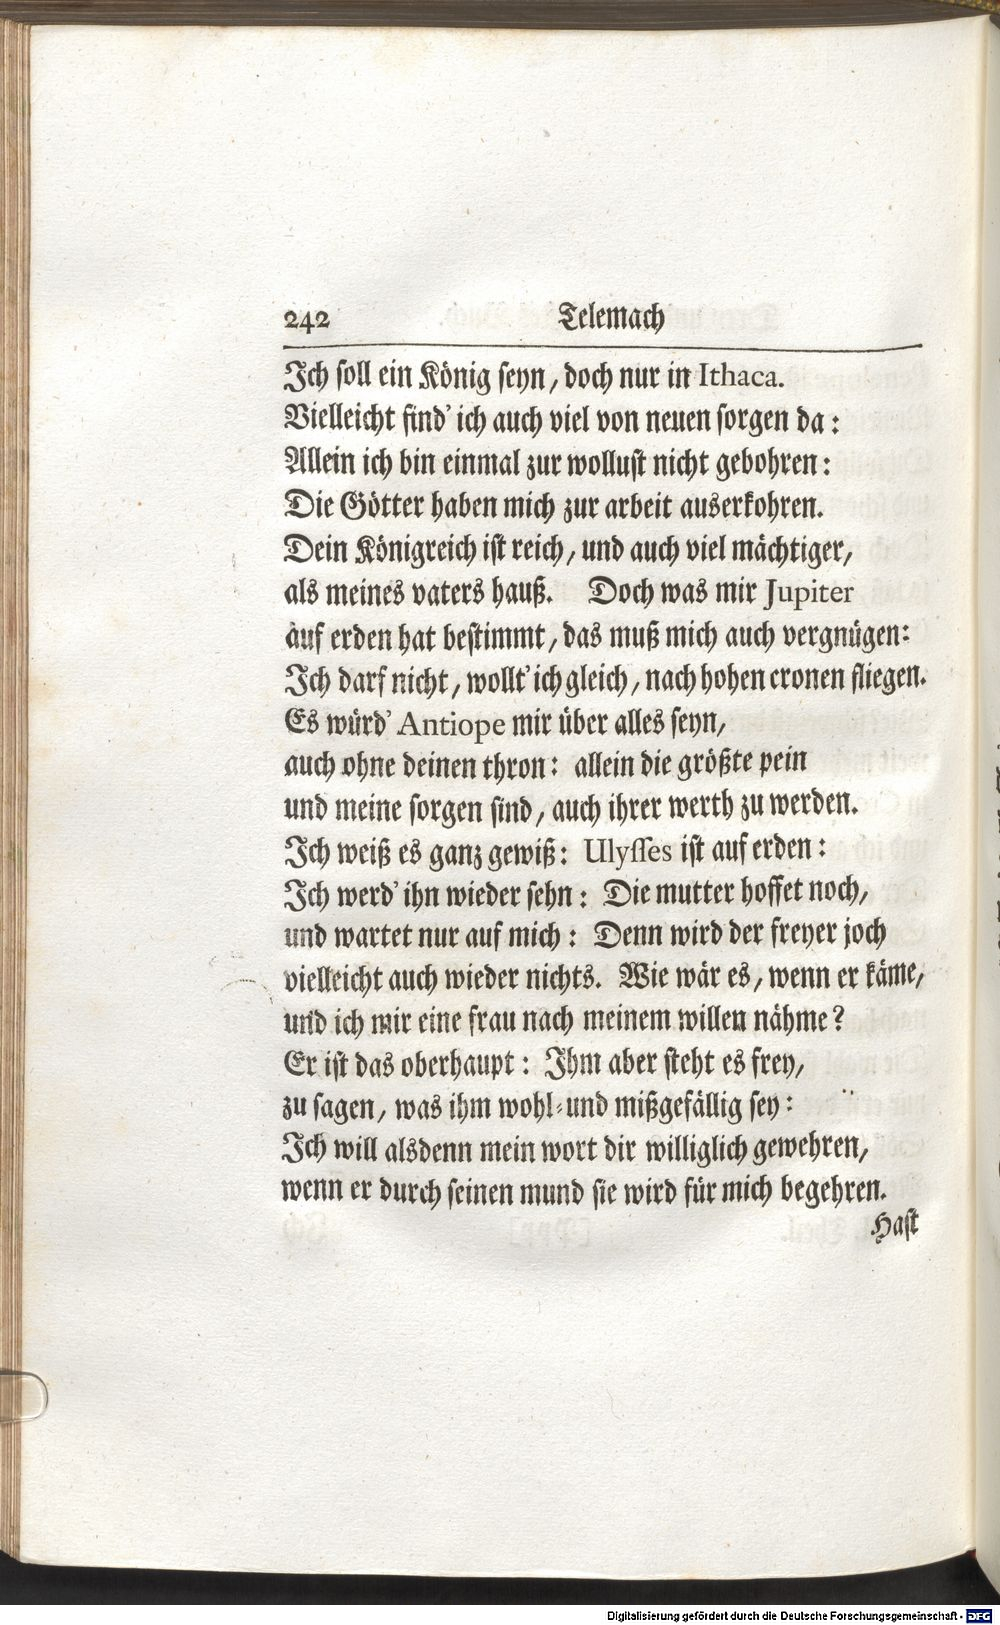 242 Telemach
Ich soll ein König seyn, doch nur in Ithaca.
Vielleicht find' ich auch viel von neuen sorgen da:
Allein ich bin einmal zur wollust nicht gebohren:
Die Götter haben mich zur arbeit auserkohren.
Dein Königreich ist reich, und auch viel mächtiger,
als meines vaters hauß. Doch was mir Jupiter
auf erden hat bestimmt, das muß mich auch vergnügen:
Ich darf nicht, wollt' ich gleich, nach hohen cronen fliegen.
Es würd' Antiope mir über alles seyn,
auch ohne deinen thron: allein die größte pein
und meine sorgen sind, auch ihrer werth zu werden.
Ich weiß es ganz gewiß: Ulysses ist auf erden:
Ich werd' ihn wieder sehn: Die mutter hoffet noch,
und wartet nur auf mich: Denn wird der freyer joch
vielleicht auch wieder nichts. Wie wär es, wenn er käme,
und ich mir eine frau nach meinem willen nähme?
Er ist das oberhaupt: Ihm aber steht es frey,
zu sagen, was ihm wohl- und mißgefällig sey:
Ich will alsdenn mein wort dir williglich gewehren,
wenn er durch seinen mund sie wird für mich begehren.
Hast
Digitalisierung gefördert durch die Deutsche Forschungsgemeinschaft - DFG